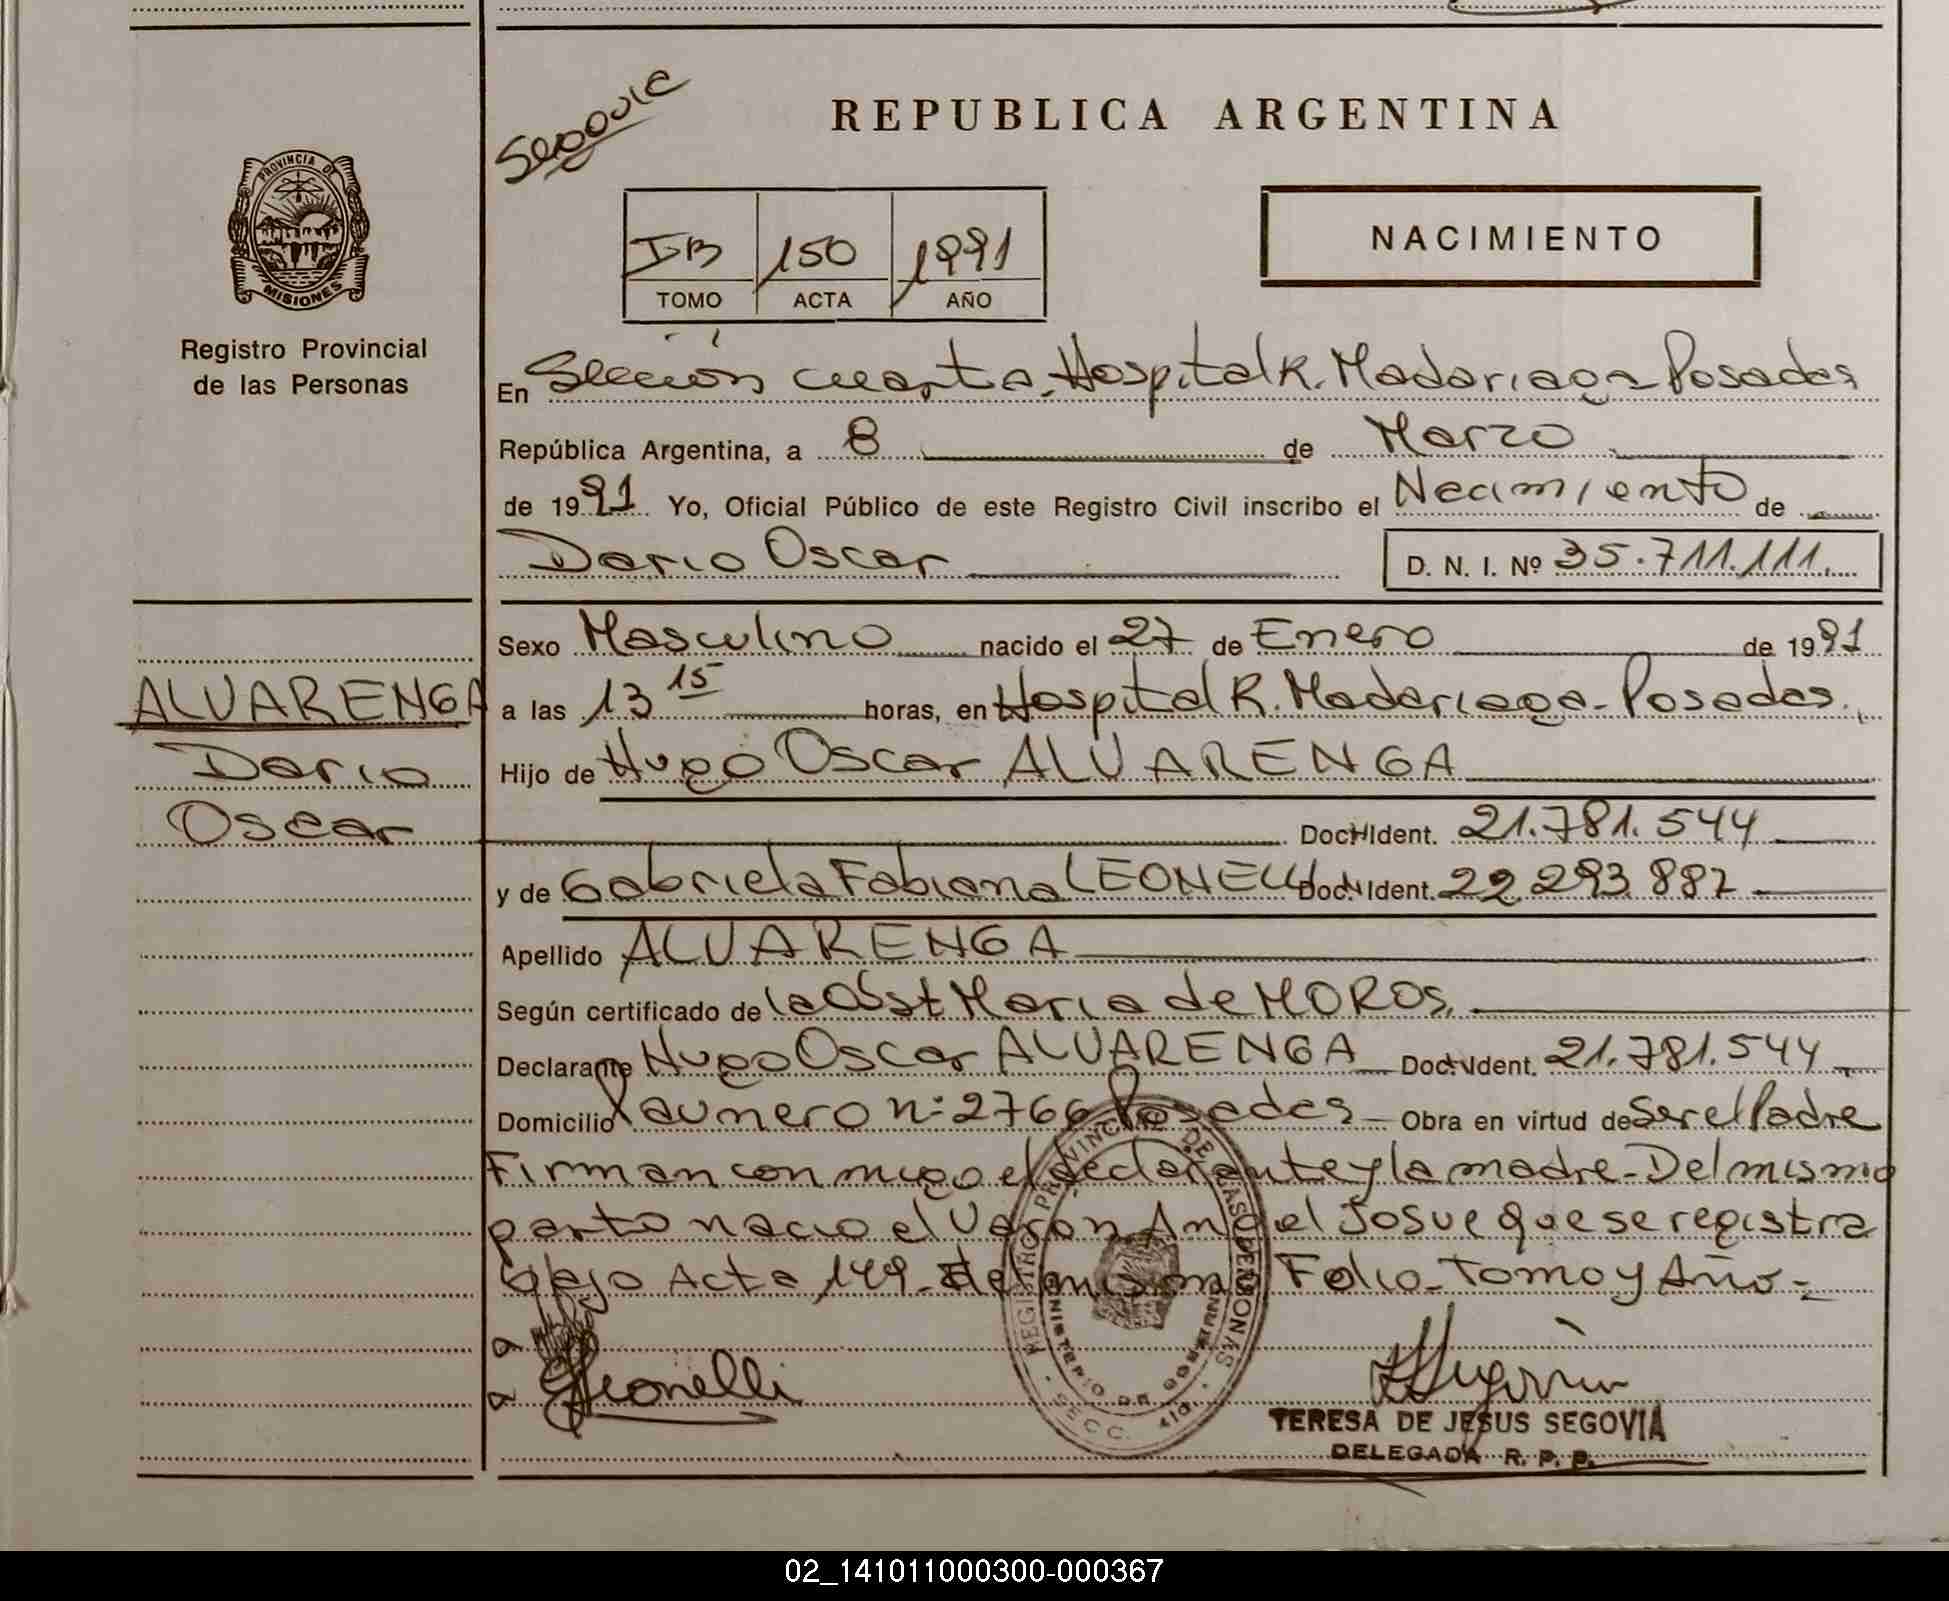 Segovia
REPUBLICA ARGENTINA
PROVINCIA DE
MISIONES
Registro Provincial
de las Personas
IB 150 1991
TOMO ACTA AÑO
NACIMIENTO
En Sección cuarta. Hospital R. Madariaga - Posadas
República Argentina, a 8 de Marzo
de 1991 Yo, Oficial Público de este Registro Civil inscribo el Nacimiento de
Dario Oscar D. N. I. Nº 35.711.111.
Sexo Masculino nacido el 27 de Enero de 1991
ALVARENGA
Dario
Oscar
a las 13 15 horas, en Hospital R. Madariaga - Posadas.
Hijo de Hugo Oscar ALVARENGA
Doc. Ident. 21.781.544
y de Gabriela Fabiana LEONELLI Doc. Ident. 22.293.887
Apellido ALVARENGA
Según certificado de la Obst Maria de MOROS.
Declarante Hugo Oscar ALVARENGA Doc. Ident. 21.781.544
Domicilio Launero n: 2766 Posadas - Obra en virtud de Ser el Padre
Firman conmigo el declarante y la madre - Del mismo
parto nacio el Varon Angel Josue que se registra
bajo Acta 149 - del mismo Folio - Tomo y Año -
Leonelli
REGISTRO PROVINCIAL DE LAS PERSONAS
MINISTERIO DE GOBIERNO
SECC. 4ta.
TERESA DE JESUS SEGOVIA
DELEGADA R. P. P.
02_141011000300-000367